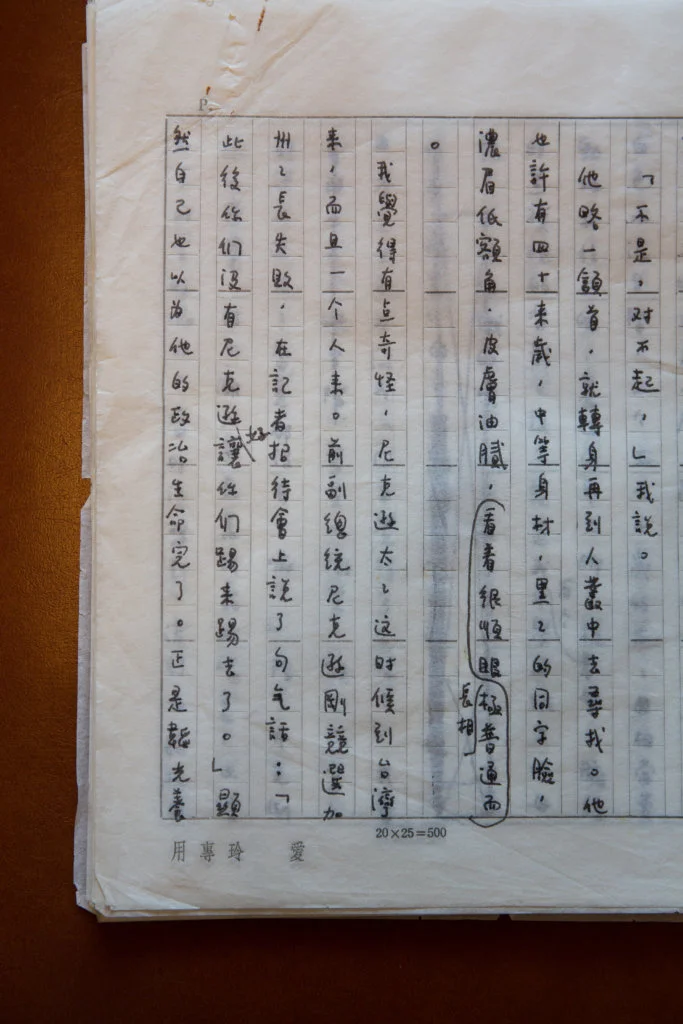 P.
「不是，对不起，」我說。
他略一頷首，就轉身再到人叢中去尋找。他
也許有四十来歲，中等身材，黑〻的同字臉，
濃眉低額角，皮膚油膩，看着很順眼極普通而
長相
。
我覺得有点奇怪，尼克遜太〻这时候到台灣
来，而且一个人来。前副總統尼克遜剛競選加
州〻長失敗，在記者招待會上說了句气話：「
此後你们没有尼克遜讓你们踢来踢去了。」顯
然自己也以为他的政治生命完了。正是韜光養
20×25=500
愛玲專用